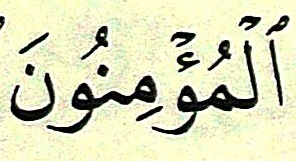 ٱلۡمُؤۡمِنُونَ